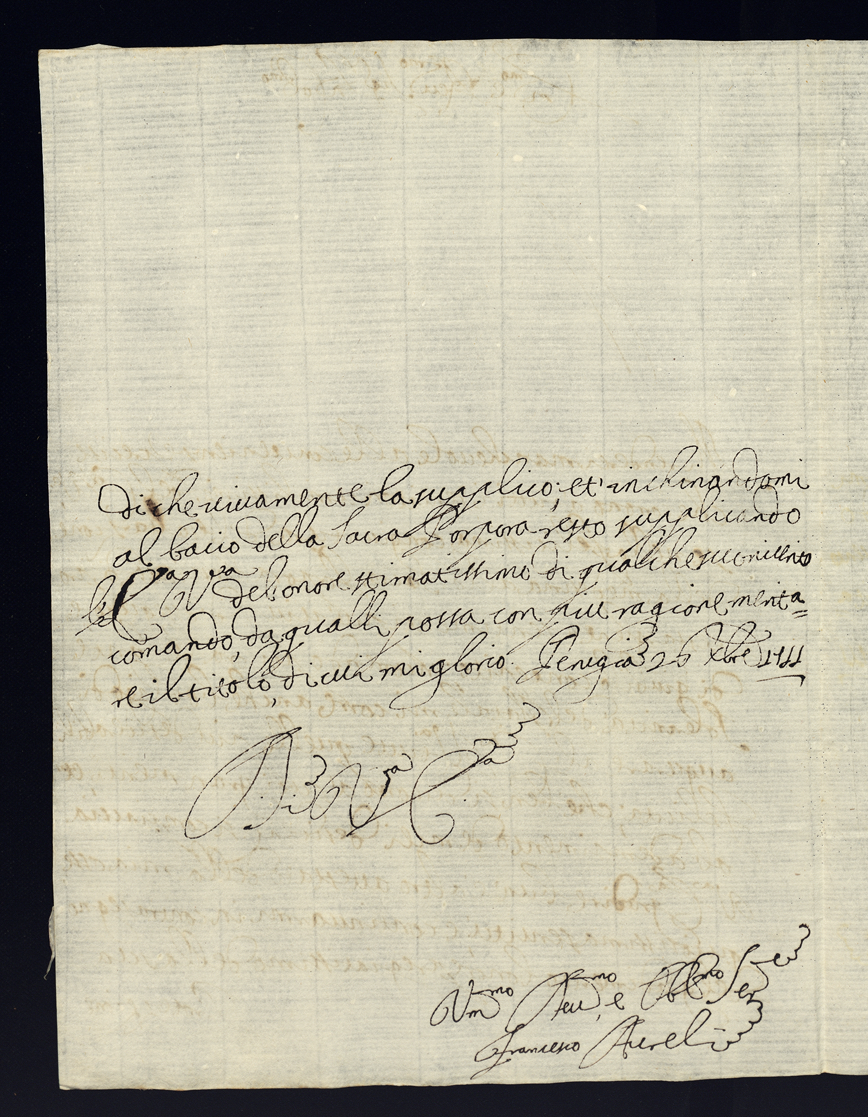 di che vivamente la supplico; et' inchinandomi
al bacio della Sacra Porpora resto supplicando
l'E.za V.ra del onore stimatissimo di qualche
comando, da quali possa con più ragione merita=
re il titolo, di cui mi glorio. Perugia 26 Xbre 1711
Di V.ra E.za
Um.mo Dev.mo, e Obb.mo Ser.re
Francesco Aureli